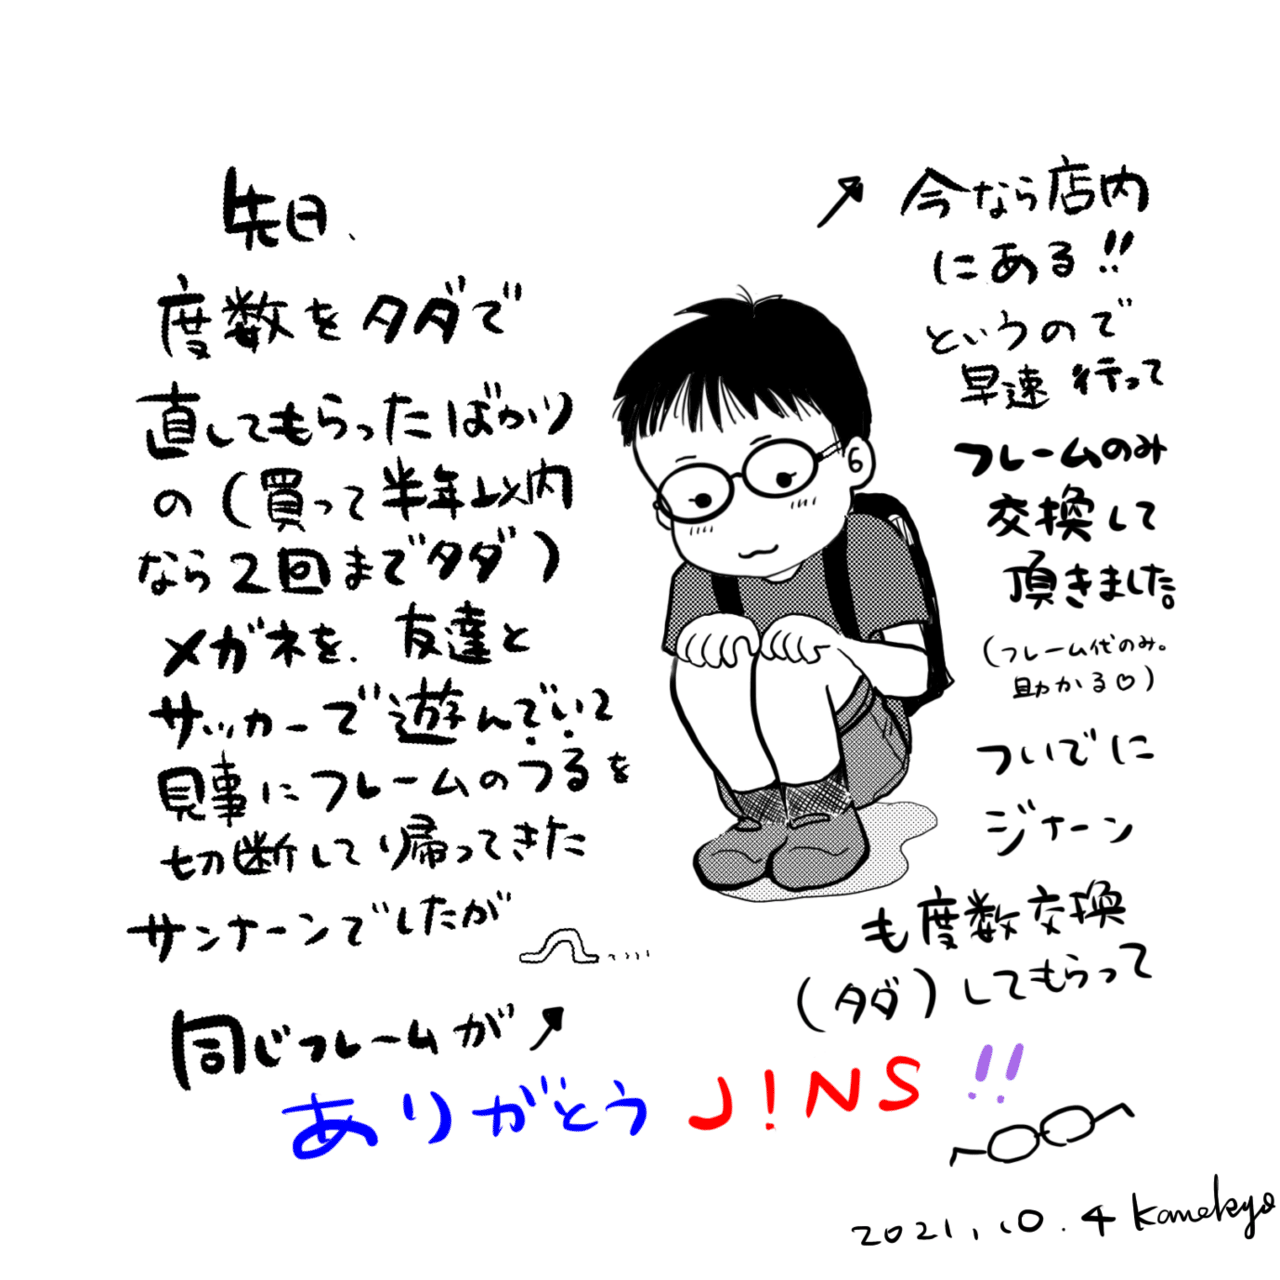 先日、
度数をタダで
直してもらったばかり
の(買って半年以内
なら2回までタダ)
メガネを、友達と
サッカーで遊んでいて
見事にフレームのつるを
切断して帰ってきた
サンナーンでしたが
同じフレームが↗
↗今なら店内
にある!!
というので
早速行って
フレームのみ
交換して
頂きました。
(フレーム代のみ。
助かる♡)
ついでに
ジナーン
も度数交換
(タダ)してもらって
ありがとうJ!NS!!
2021.10.4 Kanekyo